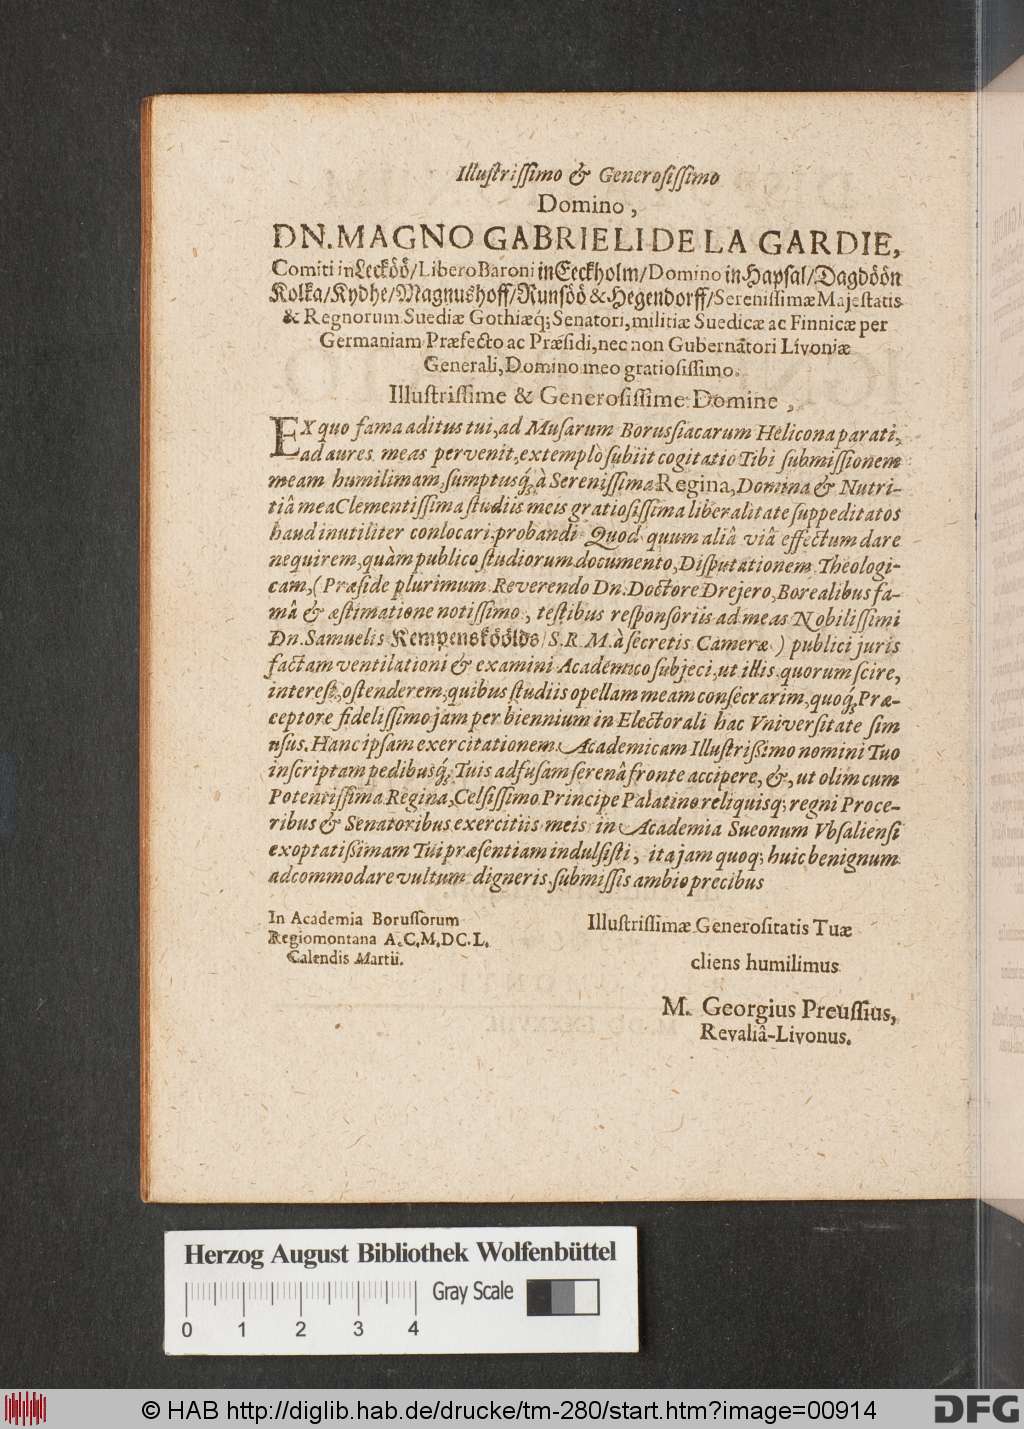 Illuſtriſſimo & Generoſiſſimo
Domino,
DN. MAGNO GABRIELI DE LA GARDIE,
Comiti in Leckoͤoͤ/ Libero Baroni in Eeckholm/ Domino in Hapſal/ Dagdoͤoͤn
Kolka/ Kydhe/ Magnushoff/ Runſoͤoͤ & Hegendorff/ Sereniſſimæ Majeſtatis
& Regnorum Suediæ Gothiæq́; Senatori, militiæ Suedicæ ac Finnicæ per
Germaniam Præfecto ac Præſidi, nec non Gubernatori Livoniæ
Generali, Domino meo gratioſiſſimo.
Illuſtriſſime & Generoſiſſime Domine,
EX quo fama aditus tui, ad Muſarum Boruſſiacarum Helicona parati,
ad aures meas pervenit, extemplò ſubiit cogitatio Tibi ſubmiſſionem
meam humilimam, ſumptusq́; à Sereniſſima Regina, Domina & Nutri-
tiâ mea Clementiſſima ſtudiis meis gratioſiſſima liberalitate ſuppeditatos
haud inutiliter conlocari, probandi. Quod quum aliâ viâ effectum dare
nequirem, quàm publico ſtudiorum documento, Diſputationem Theologi-
cam, (Præſide plurimum Reverendo Dn. Doctore Drejero, Borealibus fa-
mâ & æſtimatione notiſſimo, teſtibus reſponſoriis ad meas Nobiliſſimi
Dn. Samuelis Kempenskoͤoͤlds/ S. R. M. à ſecretis Cameræ) publici juris
factam ventilationi & examini Academico ſubjeci, ut illis quorum ſcire,
intereſt, oſtenderem, quibus ſtudiis opellam meam conſecrarim, quoq́; Præ-
ceptore fideliſſimo jam per biennium in Electorali hac Vniverſitate ſim
uſus. Hanc ipſam exercitationem Academicam Illuſtrißimo nomini Tuo
inſcriptam pedibusq́; Tuis adfuſam ſerenâ fronte accipere, &, ut olim cum
Potentiſſima Regina, Celſiſſimo Principe Palatino reliquisq; regni Proce-
ribus & Senatoribus exercitiis meis in Academia Sueonum Vbſalienſi
exoptatißimam Tui præſentiam indulſiſti, ita jam quoq; huic benignum
adcommodare vultum digneris, ſubmiſſis ambio precibus
In Academia Boruſſorum
Regiomontana A. C. M. DC. L.
Calendis Martii.
Illuſtriſſimæ Generoſitatis Tuæ
cliens humilimus
M. Georgius Preuſſius,
Revaliâ-Livonus.
Herzog August Bibliothek Wolfenbüttel
Gray Scale
0 1 2 3 4
© HAB http://diglib.hab.de/drucke/tm-280/start.htm?image=00914
DFG